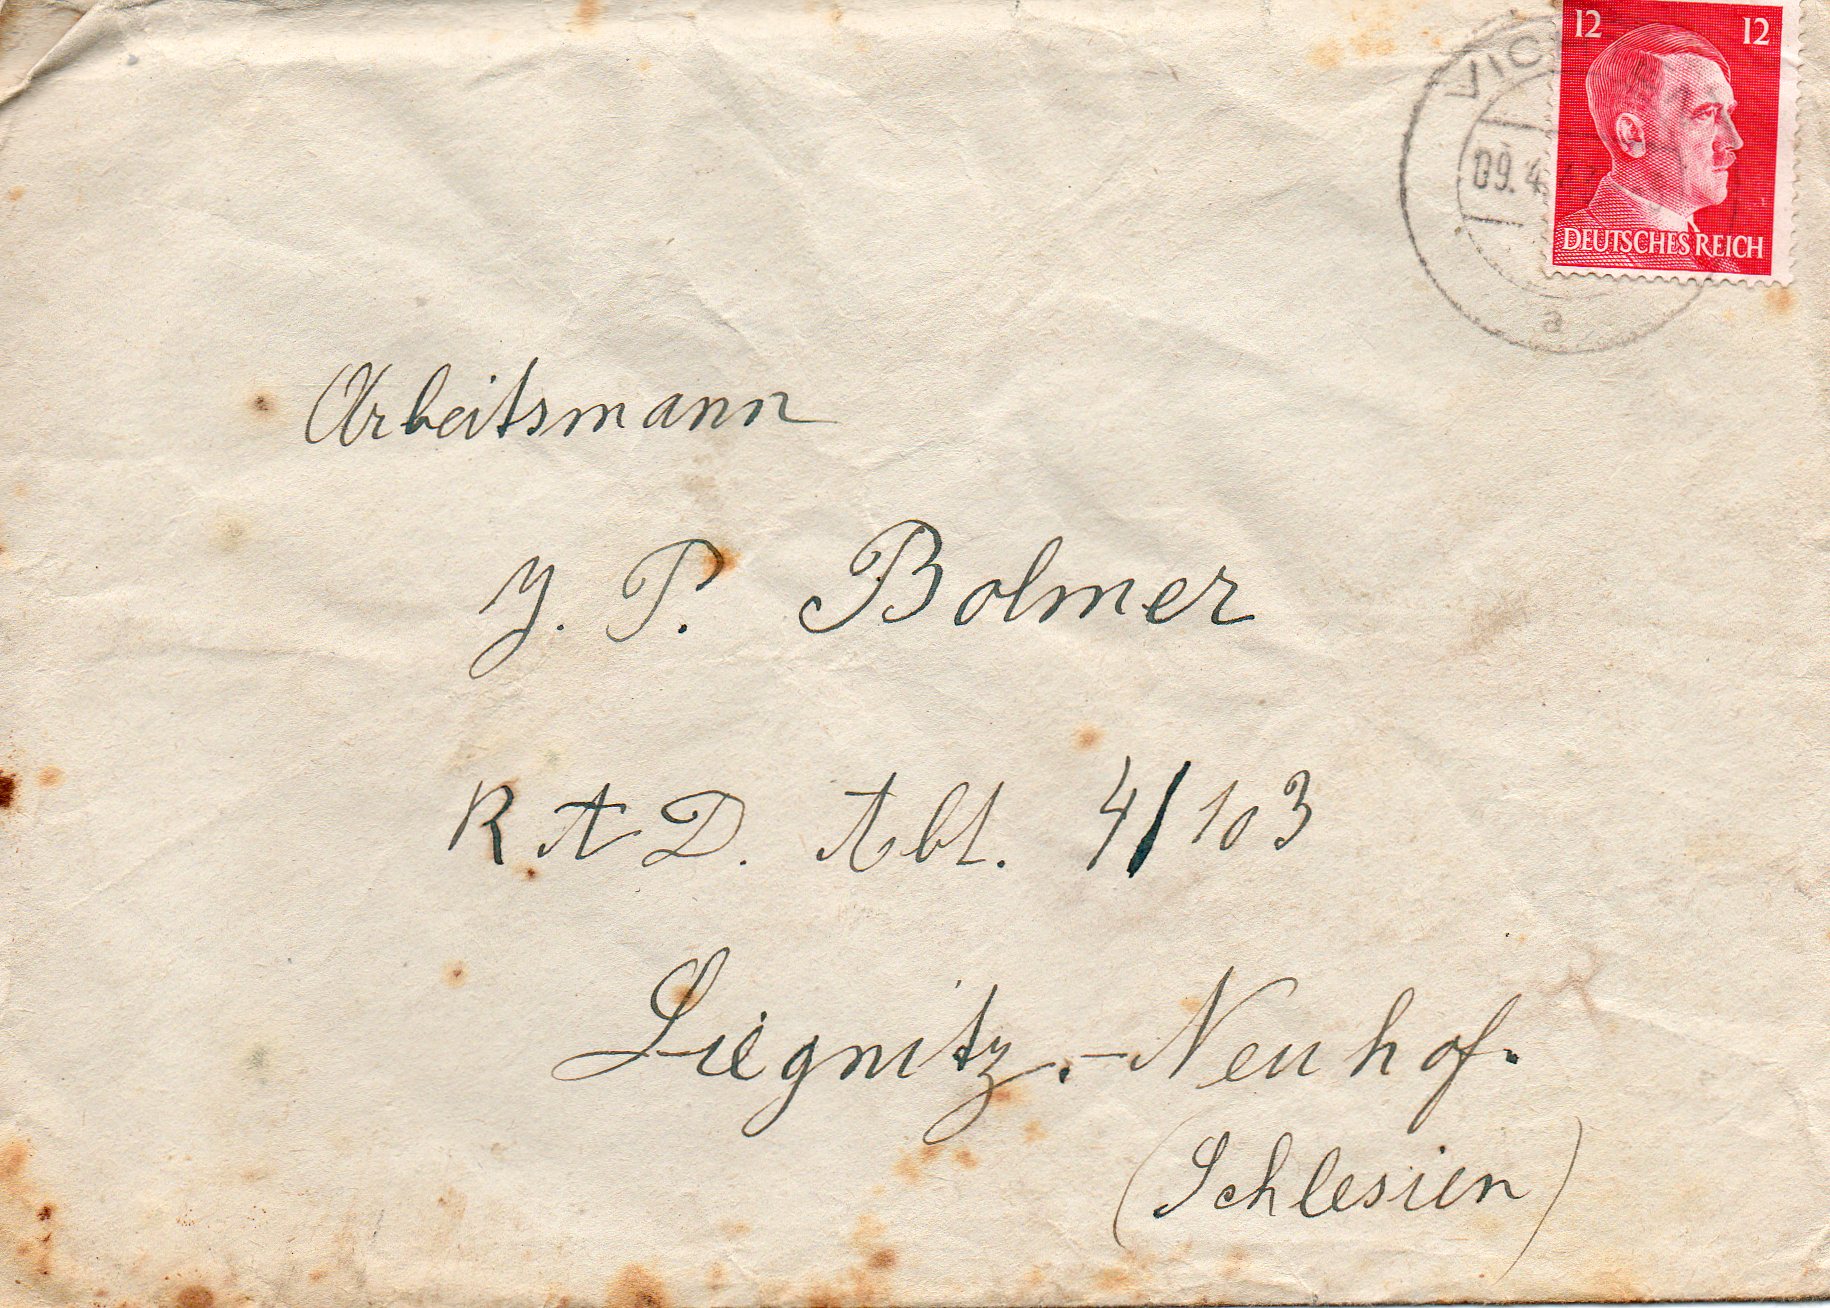 12 12
09.4
DEUTSCHES REICH
a
Arbeitsmann
J. P. Bolmer
R A D. Abt. 4/103
Liegnitz.-Neuhof.
(Schlesien)